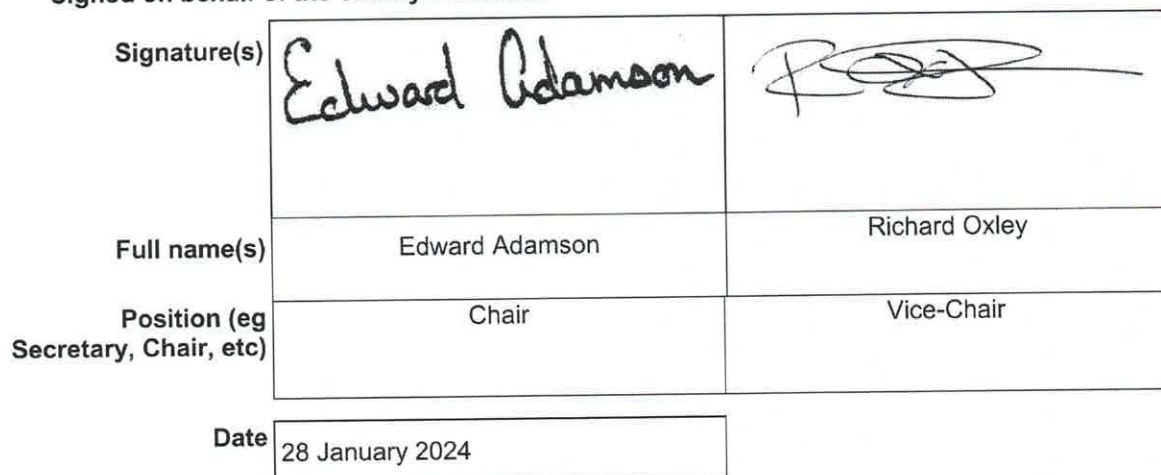 Signature(s)
Edward Adamson
Full name(s)
Edward Adamson
Richard Oxley
Position (eg
Secretary, Chair, etc)
Chair
Vice-Chair
Date
28 January 2024